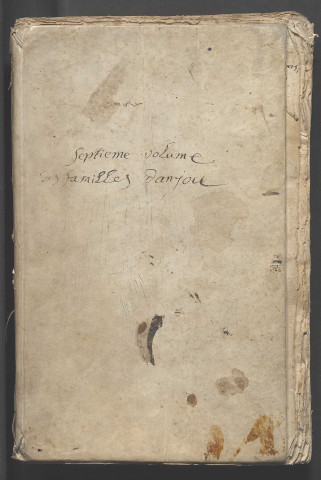 Septieme volume
des familles d'anjou